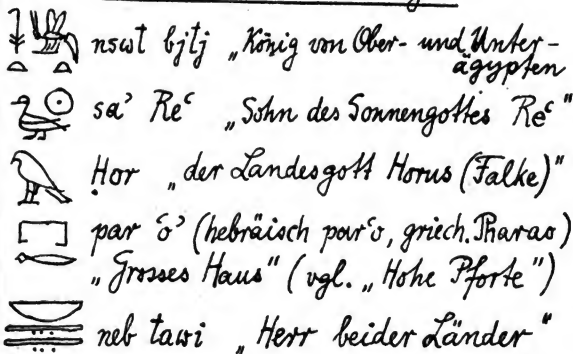 nswt bjtj „König von Ober- und Unter-
ägypten
sa' Reʿ „Sohn des Sonnengottes Reʿ"
Ḥor „der Landesgott Horus (Falke)"
par ʿo' (hebräisch parʿo, griech. Pharao)
„Grosses Haus" (vgl. „Hohe Pforte")
neb tawi „Herr beider Länder"